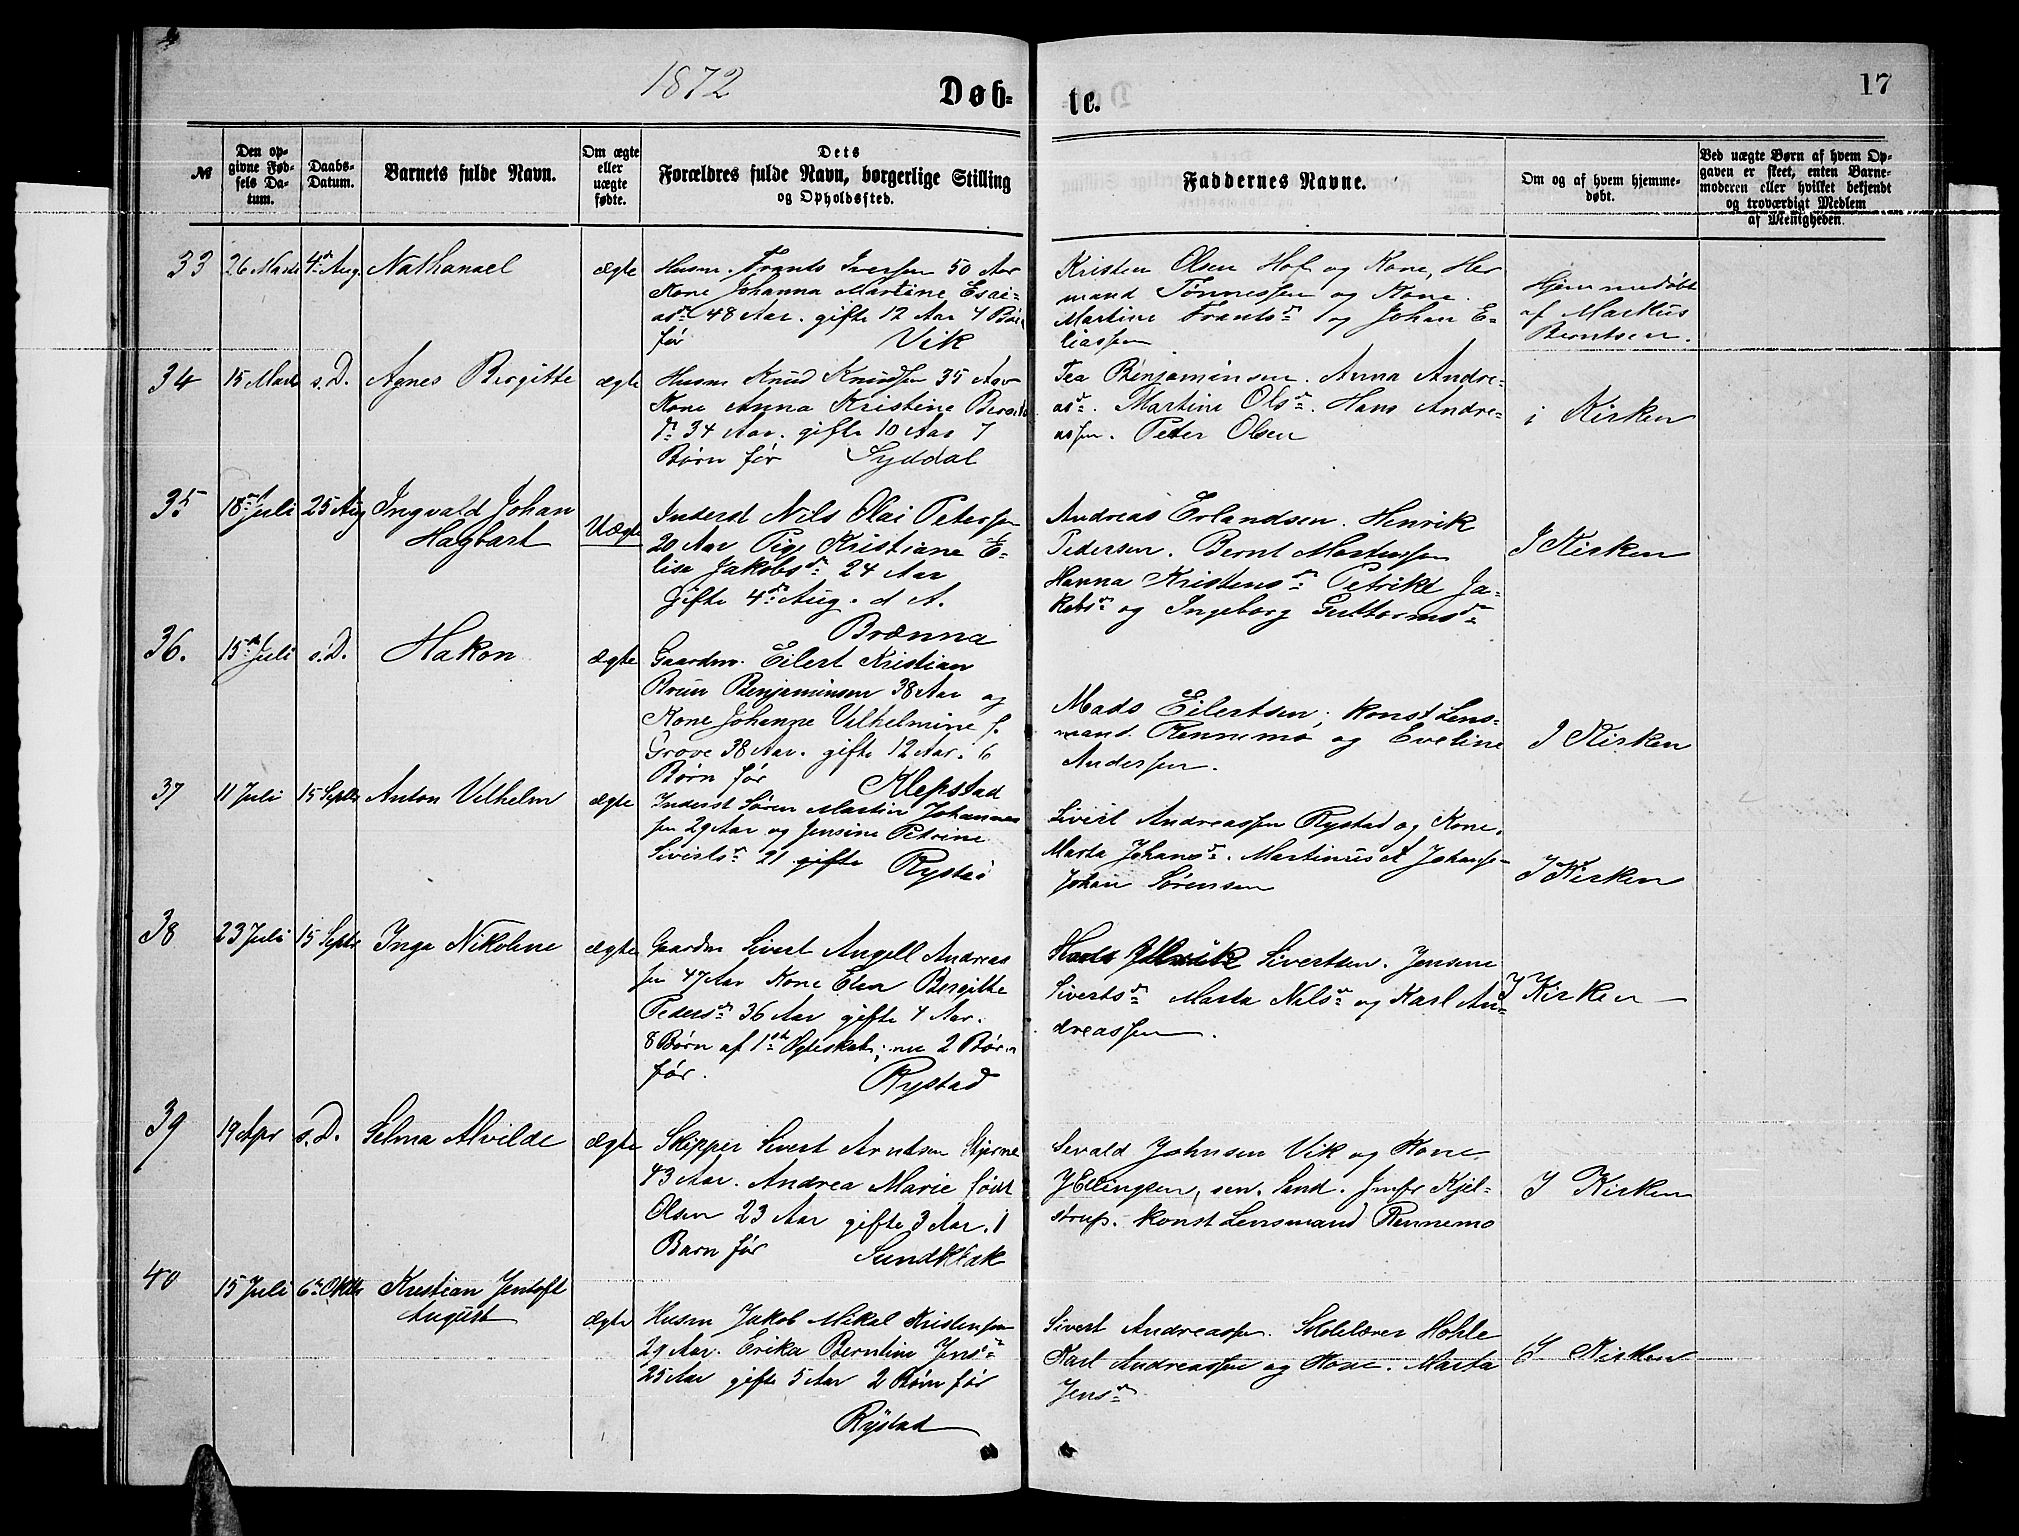 1872
Døb-
te.
17
№
Den op-
givne Fød-
sels Da-
tum.
Daabs-
Datum.
Barnets fulde Navn.
Om ægte
eller
uægte
fødte.
Dets
Forældres fulde Navn, borgerlige Stilling
og Opholdssted.
Faddernes Navne.
Om og af hvem hjemme-
døbt.
Ved uægte Børn af hvem Op-
gaven er skeet, enten Barne-
moderen eller hvilket bekjendt
og troværdigt Medlem
af Menigheden.
33
26 Marts
4de Aug
Nathanael
ægte
Husm. Frants Iversen 50 Aar
Kone Johanna Martine Esai-
asd 48 Aar. gifte 12 Aar 4 Børn
før Vik
Kristen Olsen Hof og Kone, Her
mand Tønnessen og Kone.
Martine Frantsdr og Johan E-
liassen
Hjemmedøbt
af Markus
Berntsen.
34
15 Marts
s. D.
Agnes Bergitte
ægte
Husm Knud Knudsen 35 Aar
Kone Anna Kristine Berntsd
34 Aar. gifte 10 Aar 7
Børn før Syddal
Tea Benjaminsen. Anna Andre-
asdr. Martine Olsdr. Hans Andre-
assen. Peter Olsen
i Kirken
35
18de Juli
25 Aug
Ingvald Johan
Hagbart
Uægte
Inderst Nils Olai Petersen
20 Aar Pige Kristiane E-
lisa Jakobsdr 24 Aar
Gifte 4de Aug. d A.
Brænna
Andreas Erlandsen. Henrik
Pedersen. Bernt Mortensen
Hanna Kristensdr Petrike Ja-
kobsdr og Ingeborg Guttormsdr
I Kirken
36.
15de Juli
s. D.
Hakon
ægte
Gaardm. Eilert Kristian
Brun Benjaminsen 38 Aar og
Kone Johanne Vilhelmine f.
Grove 38 Aar. gifte 12 Aar. 6
Børn før Klepstad
Mads Eilertsen; konst Lens-
mand Rennemo og Eveline
Andersen.
I Kirken
37
11 Juli
15 Septbr
Anton Vilhelm
ægte
Inderst Søren Martin Johannes
sen 29 Aar og Jensine Petrine
Sivertsdr 21 gifte Rystad
Sivert Andreassen Rystad og Kone.
Marta Johansdr. Martinus A Johanss-
Johan Sørensen
I Kirken
38
23 Juli
15 Septr
Inga Nikoline
ægte
Gaardm Sivert Angell Andreas
sen 47 Aar Kone Elen Bergitte
Pedersdr 36 Aar gifte 4 Aar.
8 Børn af 1ste Ægteskab; nu 2 Børn
før. Rystad
Sivertsen. Jensine
Sivertsdr Marta Nilsdr og Karl An-
dreassen.
I Kirken
39
19 Apr
s. D.
Selma Alvilde
ægte
Skipper Sivert Arntsen Stjerne
43 Aar. Andrea Marie født
Olsen 23 Aar gifte 3 Aar. 1
Barn før Sundklak
Sevald Johnsen Vik og Kone.
J Ellingsen, sen. Sand. Jmfr Kjel-
strup. konst Lensmand Rennemo
I Kirken
40
15 Juli
6te Oktbr
Kristian Jentoft
August
ægte
Husm Jakob Mikal Kristensen
29 Aar. Erika Berntine Jensdr
25 Aar gifte 5 Aar 2 Børn før
Rystad
Sivert Andreassen. Skolelærer Hohle
Karl Andreassen og Kone. Marta
Jensdr
I Kirken